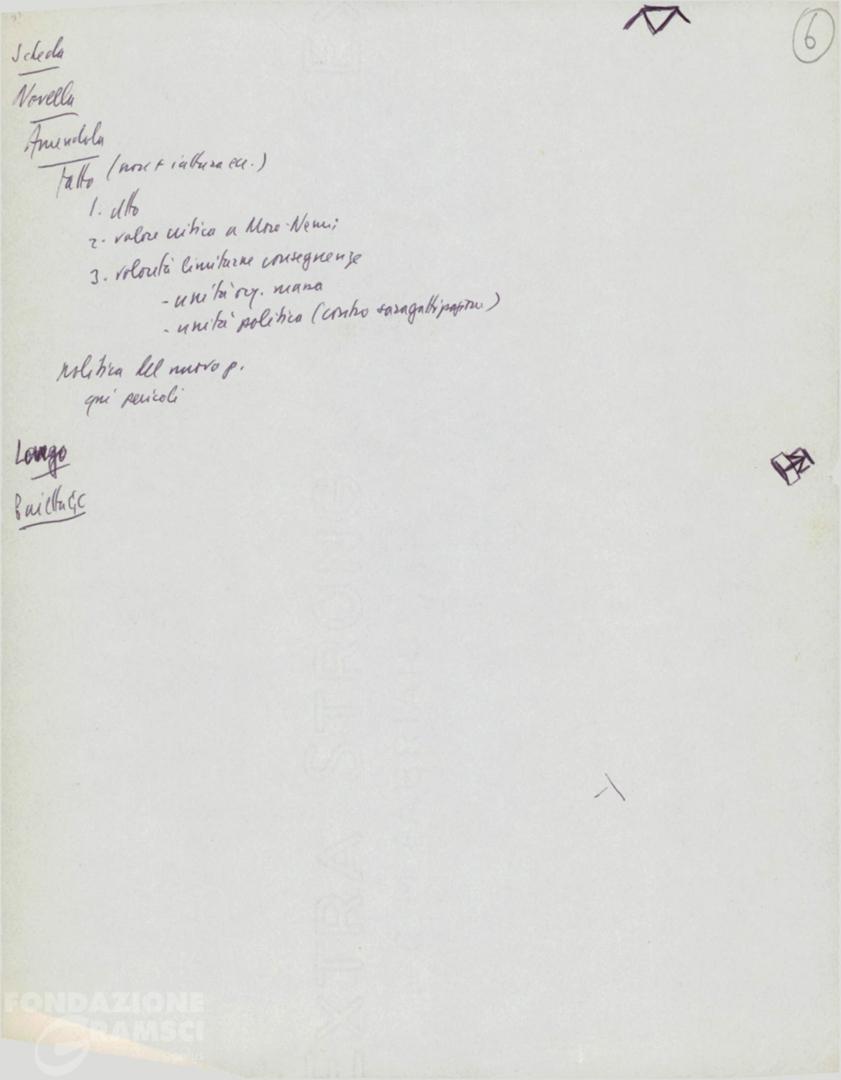 6
Scheda
Novella
Amendola
fatto (non +
1. atto
2. valore critica a Moro-Nenni
3. volontà limitarne conseguenze
- unità org. massa
- unità politica (contro
politica del nuovo p.
qui pericoli
Longo
Pajetta GC
EXTRA STRONG
FONDAZIONE
GRAMSCI